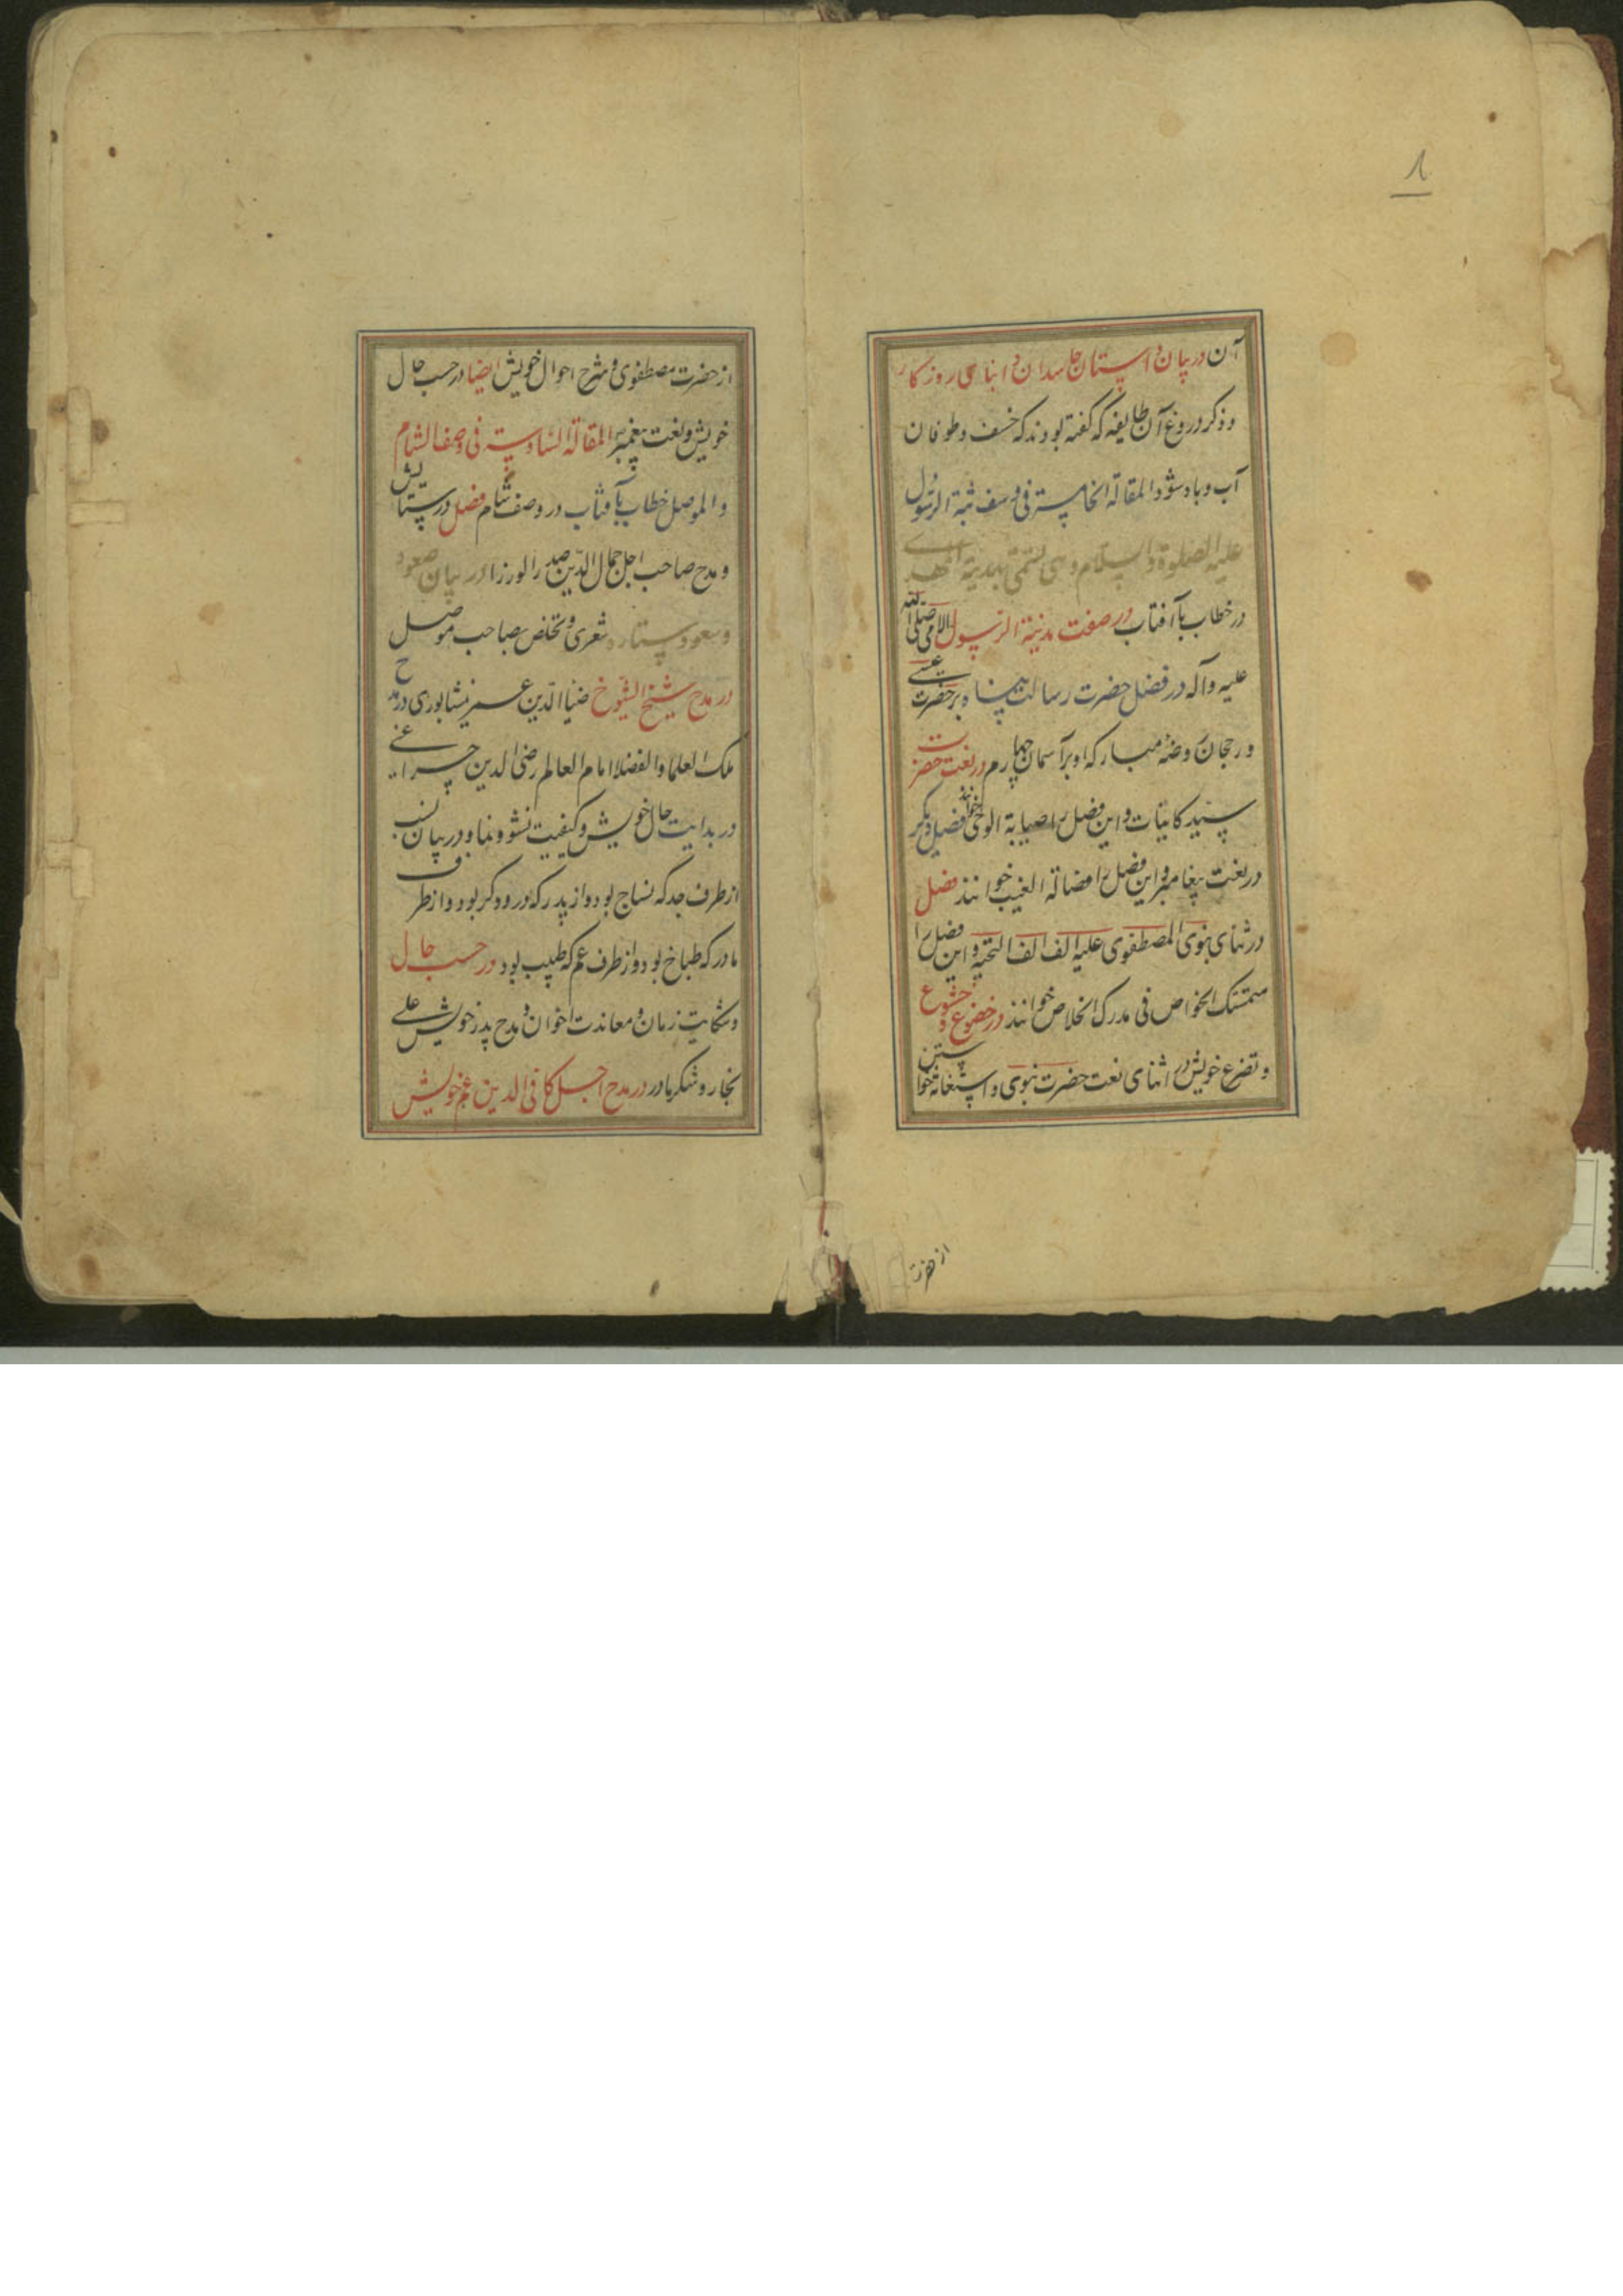 ۸
آن در بیان داستان حاسدان و ابنای روزگار
و ذکر دروغ آن طایفه که گفته بودند که خسف و طوفان
آب و باد شود المقالة الخامسة فی وصف ثبة الرسول
علیه الصلوة و السلام و هی تسمی بمدینة المهدی
در خطاب بآفتاب در صفت مدینة الرسول الامی صلی الله
علیه و آله در فضل حضرت رسالت پناه بر حضرت عیسی
و رجحان روضهٔ مبارکه او بر آسمان چهارم در نعت حضرت
سید کاینات و این فصل را صیابة الوحی خوانند فصل دیگر
در نعت پیغامبر و این فصل را مضاتة الغیب خوانند فصل
در ثنای نبوی المصطفوی علیه الف الف التحیة و این فصل را
متمسک الخواص فی مدرک الخلاص خوانند در خضوع و خشوع
و تضرع خویش در اثنای نعت حضرت نبوی و استغاثه خواستن
از حضرت
از حضرت مصطفوی و شرح احوال خویش ایضا در حسب حال
خویش و نعت پیغمبر المقالة السادسة فی وصف الشام
و الموصل خطاب بآفتاب در وصف شام فصل در ستایش
و مدح صاحب اجل جمال الدین صدر الوزرا در بیان صعود
و سعود ستاره شعری و تخلص بصاحب موصل
در مدح شیخ الشیوخ ضیاء الدین عمر نیشابوری در مدح
ملک العلما و الفضلا امام العالم رضی الدین خزاعی
در بدایت حال خویش و کیفیت نشو و نما و در بیان نسب
از طرف جد که نساج بود و از پدر که درودگر بود و از طرف
مادر که طباخ بود و از طرف عم که طبیب بود در حسب حال
و شکایت زمان و معاندت اخوان و مدح پدر خویش علی
نجار و شکر مادر در مدح اجل کافی الدین عم خویش